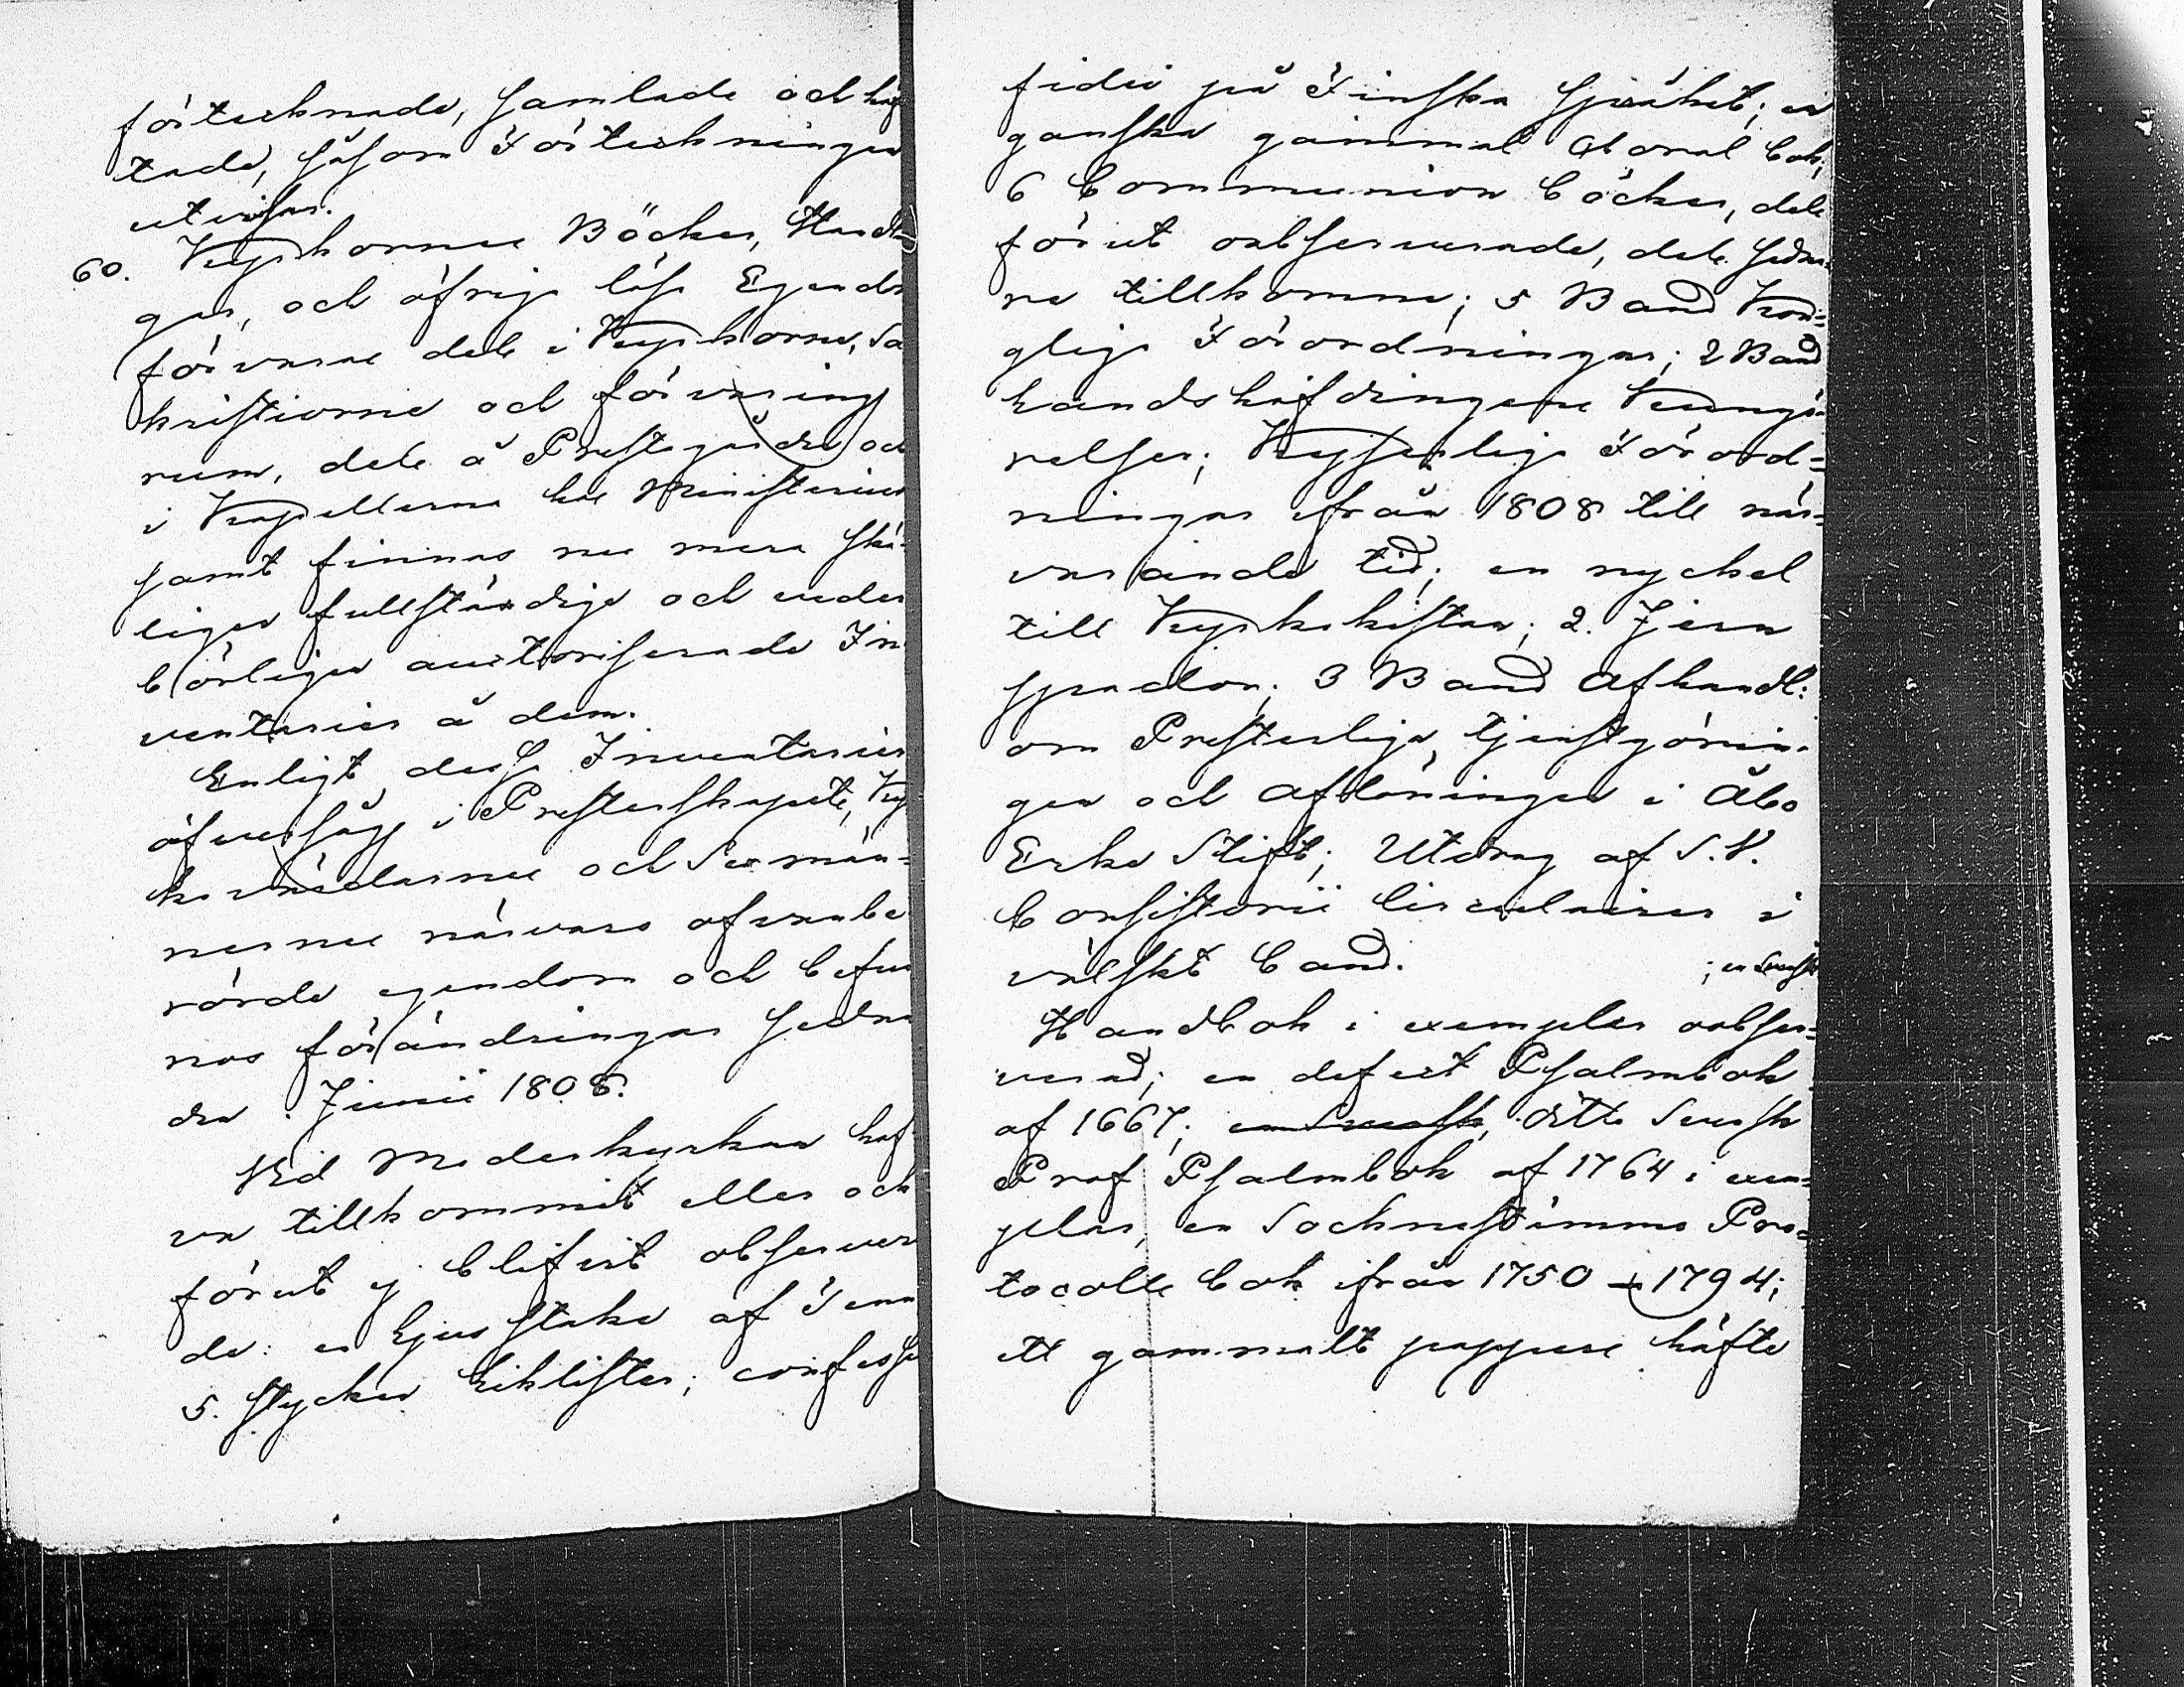 förtecknade, samlade och häf
tade, såsom Förteckningen
utvisar.
60. Kyrkornes Böcker, Handlin
gar, och öfrige löse Egendom
förvaras dels i Kyrkorne, Sa
kristiorne och förvarings
rum, dels å Prestegården och
i Kapellerna hos Ministerium
samt finnas nu mera skä-
ligen fullständige och veder
börligen auctoriserade In
ventarier å dem.
Enligt desse Inventarier
öfversågs i Presterskapets, Kyr
kovärdarnes och Sexmän-
nernes närvaro ofvanbe
rörde egendom och befun
nos förändringar sedna
den Junii 1808.
Vid Moderkyrkan haf
va tillkommit eller ock
förut ej blifvit observera
de: en Ljusstake af Tenn
5. stycken Liklister; confessio
fidei på Finska språket; en
ganska gammal Choral bok;
6 Communion böcker, dels
förut observerade, dels sedna-
re tillkomne; 5 Band Kon=
glige Förordningar; 2 Band
Landshöfdingens Kungö-
relser; Kejserlige Förord=
ningar ifrån 1808 till när=
varande tid; en nyckel
till Kyrkokistan; 2. Jern
spador; 3 Band Afhandl:
om Presterlige tjenstgörin-
gen och aflöningen i Åbo
Erke Stift; Utdrag af S.V.
Consistorii Circulairer i
välskt band. ; en Svensk
Handbok i exemplar obser=
verad; en defect Psalmbok
af 1667; en Svensk, ditto Svensk
Prof Psalmbok af 1764 i exem=
plar, en Socknestämmo Pro=
tocolls bok ifrån 1750 - 1794;
ett gammalt pappers häfte